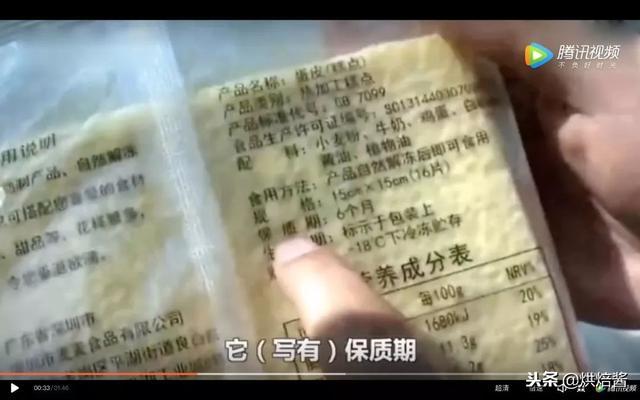 腾讯视频
不负好时光
产品名称：蛋皮(糕点)
产品类别：热加工糕点
产品标准代号：GB 7099
食品生产许可证编号：SC01314403079
配 料：小麦粉、牛奶、鸡蛋、白
黄油、植物油
食用方法：产品自然解冻后即可食用
规 格：15cm×15cm(16片)
保质期：6个月
期：标示于包装上
-18℃下冷冻贮存
养成分表
每100g NRV%
1680kJ 20%
19%
25%
用说明
制产品、自然解冻
可搭配您喜爱的食材
、甜品等，花样繁多，
广东省深圳市
食品有限公司
区平湖街道良白
它（写有）保质期
00:33/01:46
超清
倍速
腾讯视频
头条@烘焙酱